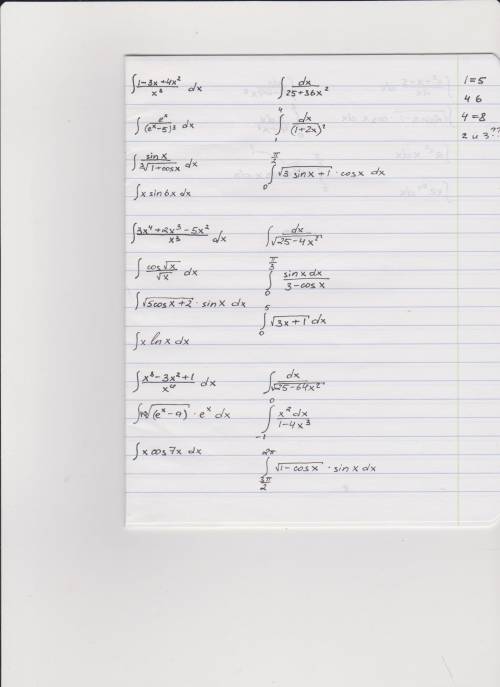 ∫ (1-3x+4x²)/x³ dx
∫ dx/(25+36x²)
∫ eˣ/(eˣ-5)³ dx
∫₁⁴ dx/(1+2x)²
∫ sinx/³√(1+cosx) dx
∫₀^(π/2) √(3sinx+1) · cosx dx
∫ x sin6x dx
∫ (3x⁴+2x³-5x²)/x³ dx
∫ dx/√(25-4x²)
∫ cos√x/√x dx
∫₀^(π/3) sinxdx/(3-cosx)
∫ √(5cosx+2) · sinx dx
∫₀⁵ √(3x+1) dx
∫ x lnx dx
∫ dx/√(25-64x²)
∫₋₁⁰ x²dx/(1-4x³)
∫ x cos7x dx
∫_(3π/2)^(2π) √(1-cosx) · sinx dx
1=5
4 6
4=8
2 и 3??